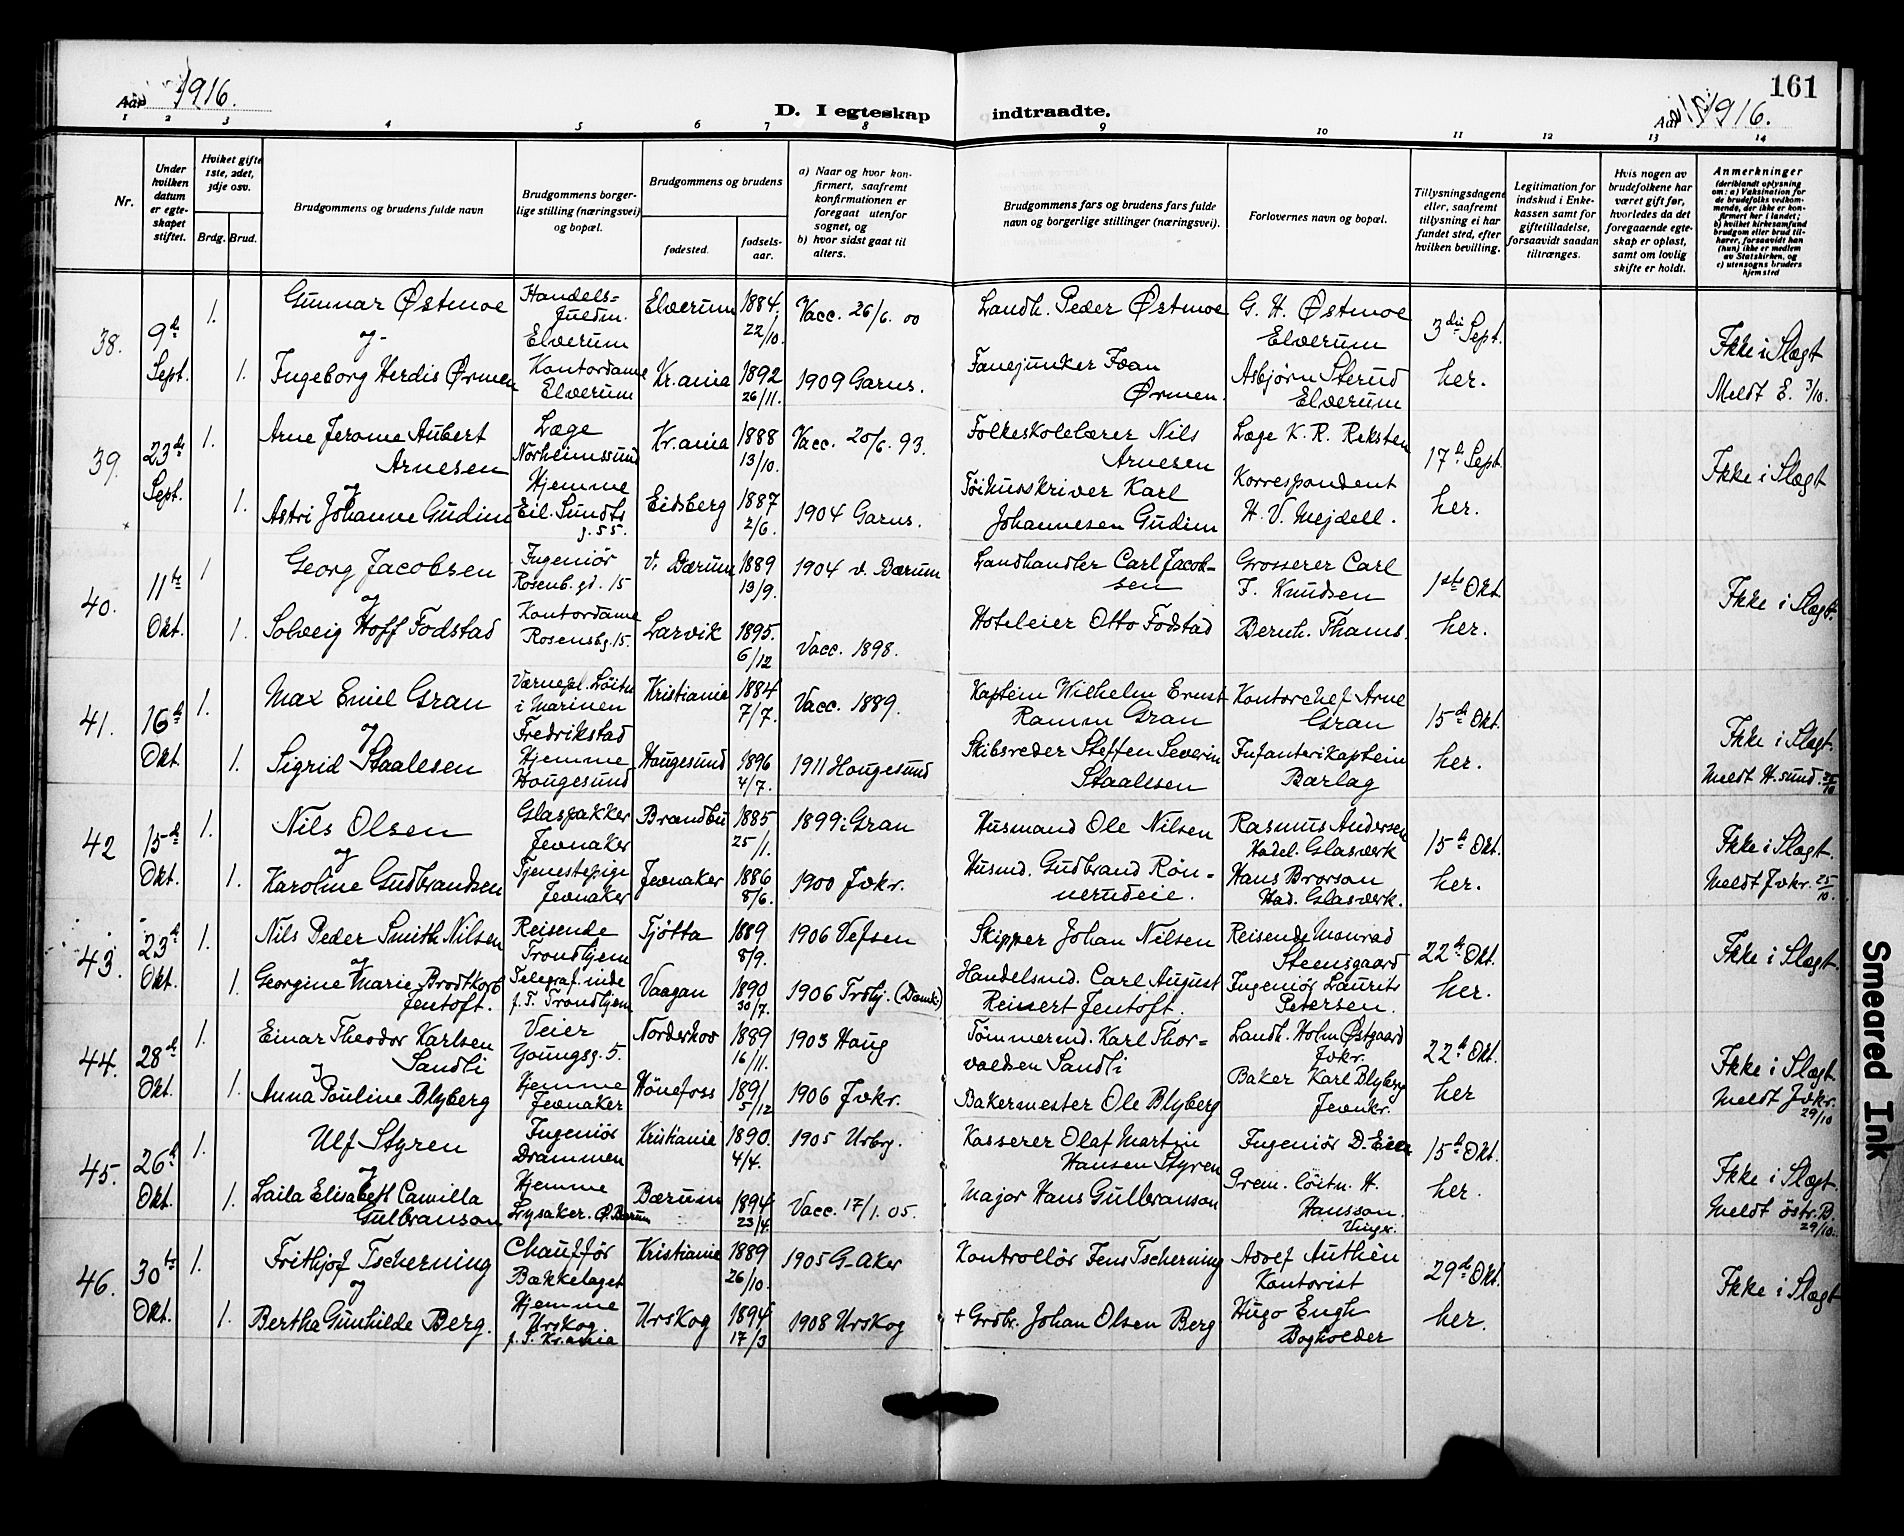 161
Aar 1916.
D. I egteskap indtraadte.
Aar 1916.
1 2 3 4 5 6 7 8 9 10 11 12 13 14
Nr.
Under
hvilken
datum
er egte-
skapet
stiftet.
Hvilket gifte
1ste, 2det,
3dje osv.
Brdg. Brud.
Brudgommens og brudens fulde navn
Brudgommens borger-
lige stilling (næringsvei)
og bopæl.
Brudgommens og brudens
fødested.
fødsels-
aar.
a) Naar og hvor kon-
firmert, saafremt
konfirmationen er
foregaat utenfor
sognet, og
b) hvor sidst gaat til
alters.
Brudgommens fars og brudens fars fulde
navn og borgerlige stillinger (næringsvei).
Forlovernes navn og bopæl.
Tillysningsdagene
eller, saafremt
tillysning ei har
fundet sted, efter
hvilken bevilling.
Legitimation for
indskud i Enke-
kassen samt for
giftetilladelse,
forsaavidt saadan
tiltrænges.
Hvis nogen av
brudefolkene har
været gift før,
hvorledes da det
foregaaende egte-
skap er opløst,
samt om lovlig
skifte er holdt.
Anmerkninger
(deriblandt oplysning
om: a) Vaksination for
de brudefolks vedkom-
mende, der ikke er kon-
firmert her i landet;
b) hvilket kirkesamfund
brudgom eller brud til-
hører, forsaavidt han
(hun) ikke er medlem
av Statskirken, og
c) utensogns bruders
hjemsted
38.
9de
Sept.
1.
Gunnar Østmoe
og
Handels-
fuldm.
Elverum
Elverum
1884.
22/10.
Vacc. 26/6. 00
Landh. Peder Østmoe
G. H. Østmoe
Elverum
3die Sept.
Ikke i Slægt
1.
Ingeborg Herdis Ørmen
Kontordame
Elverum
Kr.ania
1892
26/11.
1909 Garns.
Fanejunker Ivan
Ørmen.
Asbjørn Sterud
Elverum
her.
Meldt E. 3/10.
39.
23de
Sept.
1.
Arne Jerome Aubert
Arnesen
og
Læge
Norheimssund
Kr.ania
1888
13/10.
Vacc. 20/6. 93.
Folkeskolelærer Nils
Arnesen
Læge K. R. Reksten
17de Sept.
Ikke i Slægt
1.
Astri Johanne Gudim
Hjemme
Eil. Sundts
g. 55.
Eidsberg
1887
2/6.
1904 Garns.
Tøihusskriver Karl
Johannesen Gudim
Korrespondent
H. V. Mejdell.
her.
40.
11te
Okt.
1
Georg Jacobsen
og
Ingeniør
Rosenb. gd. 15
v. Bærum
1889
13/9.
1904 v. Bærum
Landhandler Carl Jacob-
sen
Grosserer Carl
F. Knudsen
1ste Okt
Ikke i Slægt.
1.
Solveig Hoff Fodstad
Kontordame
Rosensbg. 15.
Larvik
1895.
6/12
Vacc. 1898.
Hoteleier Otto Fodstad
Bernh. Thams.
her.
41.
16de
Okt.
1.
Max Emil Gran
og
Værnepl. Løitn
i Marinen
Fredrikstad
Kristiania
1884
7/7.
Vacc. 1889.
Kaptein Wilhelm Ernst
Ramm Gran
Kontorchef Arne
Gran
15de Okt.
Ikke i Slægt.
1.
Sigrid Staalesen
Hjemme
Hougesund
Hougesund
1896
4/7.
1911 Hougesund
Skibsreder Steffen Severin
Staalesen
Infanterikaptein
Barlag
her.
Meldt H.sund. 25/10
42
15de
Okt.
1.
Nils Olsen
og
Glaspakker
Jevnaker
Brandbu
1885
25/1.
1899 i Gran
Husmand Ole Nilsen
Rasmus Andersen
Hadel. Glasverk
15de Okt.
Ikke i Slægt.
1.
Karoline Gudbrandsen
Tjenestepige
Jevnaker
Jevnaker
1886
8/6.
1900 Jvkr.
Husmd. Gudbrand Røn-
nerudeie.
Hans Brorson
Had. Glasverk.
her.
Meldt Jvkr. 25/10.
43.
23de
Okt.
1.
Nils Peder Smith Nilsen
og
Reisende
Trondhjem
Tjøtta
1889
8/9.
1906 Vefsen
Skipper Johan Nilsen
Reisende Monrad
Steensgaard
22de Okt.
Ikke i Slægt.
1.
Georgine Marie Brodtkorb
Jentoft.
Telegraf. inde
f. T. Trondhjem
Vaagan
1890
30/7.
1906 Trdhj. (Domk)
Handelsmd. Carl August
Reinert Jentoft.
Ingeniør Laurits
Petersen.
her.
44.
28de
Okt.
1.
Einar Theodor Karlsen
Sandli
og
Veier
Youngsg. 5.
Norderhov
1889
16/11.
1903 Haug
Tømmermd. Karl Thor-
valdsen Sandli
Landh. Holm Østgaard
Jvkr.
22de Okt.
Ikke i Slægt.
1.
Anna Pauline Blyberg
Hjemme
Jevnaker
Hönefoss
1891
5/12
1906 Jvkr.
Bakermester Ole Blyberg
Baker Karl Blyberg
Jevnkr.
her
Meldt Jvkr.
29/10
45.
26de
Okt.
1.
Ulf Styren
og
Ingeniør
Drammen
Kristiania
1890.
4/4.
1905 Urbrg.
Kasserer Olaf Martin
Hansen Styren
Ingeniør D. Eien
15de Okt.
Ikke i Slægt.
1.
Laila Elisabeth Camilla
Gulbranson
Hjemme
Lysaker. Ø. Bærum
Bærum
1894
23/4.
Vacc. 17/1. 05.
Major Hans Gulbranson
Prem. løitn. H.
Hansson.
Vinger.
her.
Meldt östr. B.
29/10.
46.
30te
Okt.
1.
Frithjof Tscherning
og
Chauffør
Bækkelaget
Kristiania
1889
26/10.
1905 G. Aker
Kontrollør Jens Tscherning
Adolf Authèn
Kontorist
29de Okt.
Ikke i Slægt
1.
Bertha Gunhilde Berg.
Hjemme
Urskog
f. T. Kr.ania
Urskog
1894
17/3
1908 Urskog
+ Grdbr. Johan Olsen Berg
Hugo Engh
Bogholder
her.
Smeared Ink